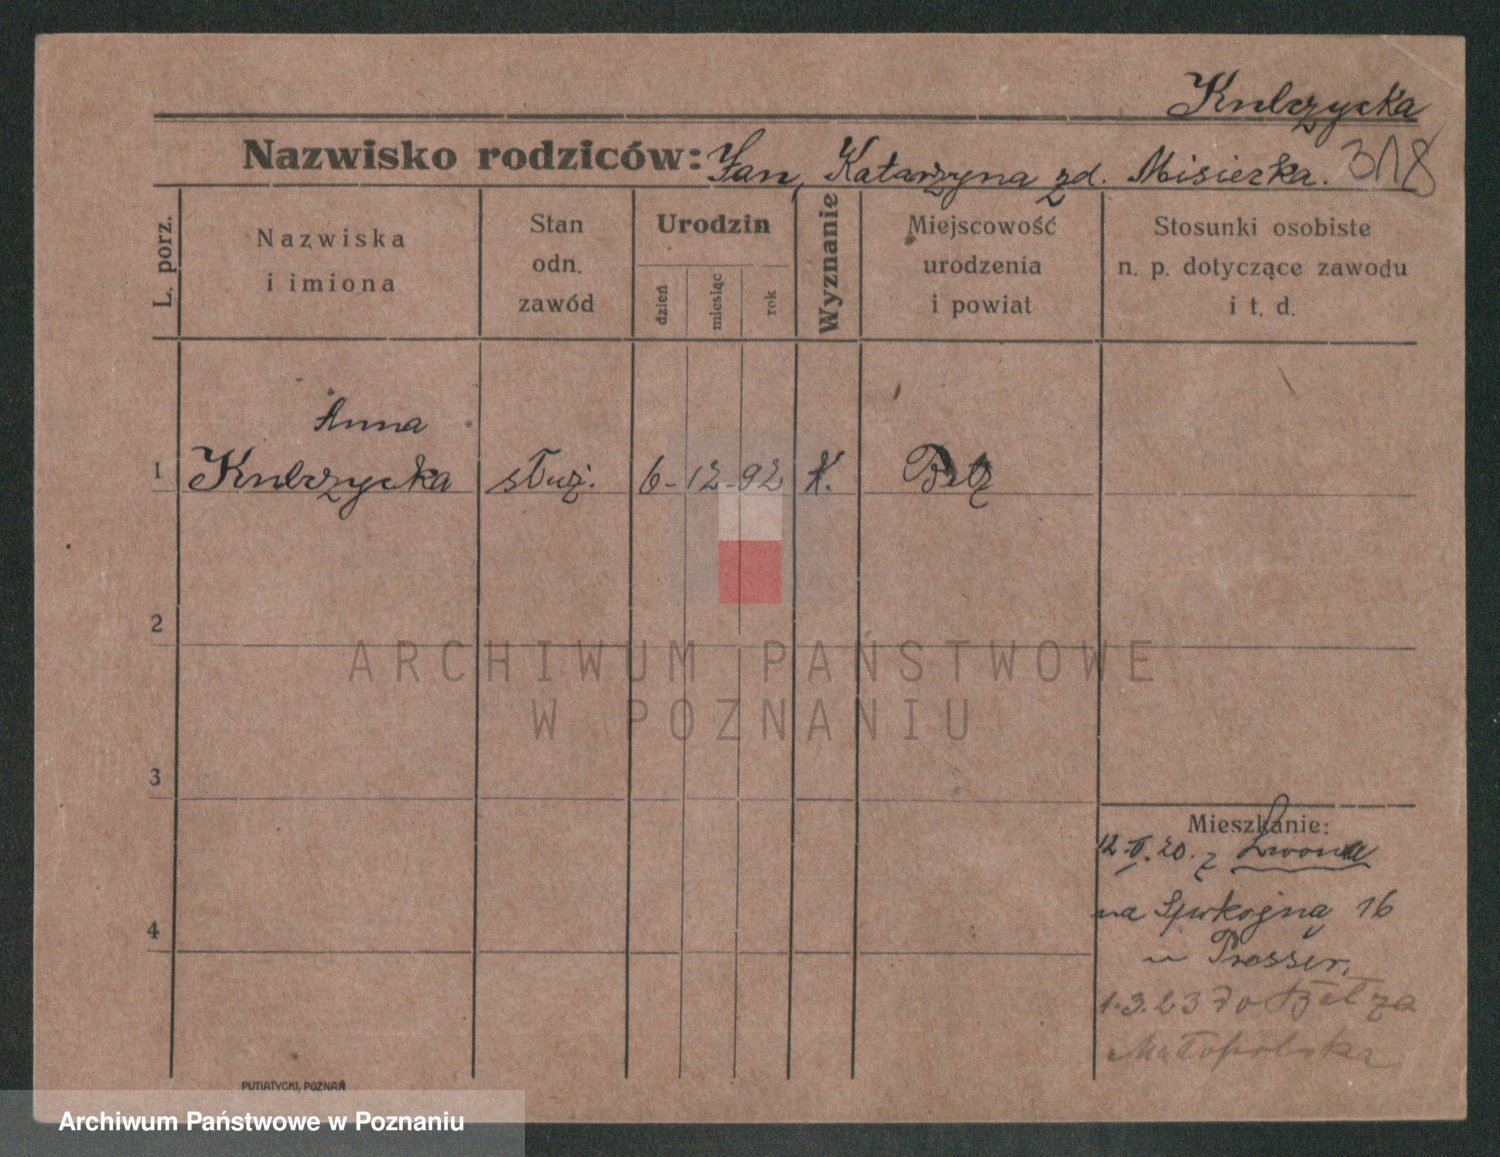 Kulczycka
Nazwisko rodziców: Jan, Katarzyna zd. Misierka. 318
L. porz.
Nazwiska
i imiona
Stan
odn.
zawód
Urodzin
dzień
miesiąc
rok
Wyznanie
Miejscowość
urodzenia
i powiat
Stosunki osobiste
n. p. dotyczące zawodu
i t. d.
Anna
1 Kulczycka służ. 6-12-92 K. Bełz
2
ARCHIWUM PAŃSTWOWE
W POZNANIU
3
Mieszkanie:
12.II.20. z Lwowa
na Spokojną 16
4
u Prosser.
1.3.23 do Bełza
Małopolska
PUTIATYCKI, POZNAŃ
Archiwum Państwowe w Poznaniu